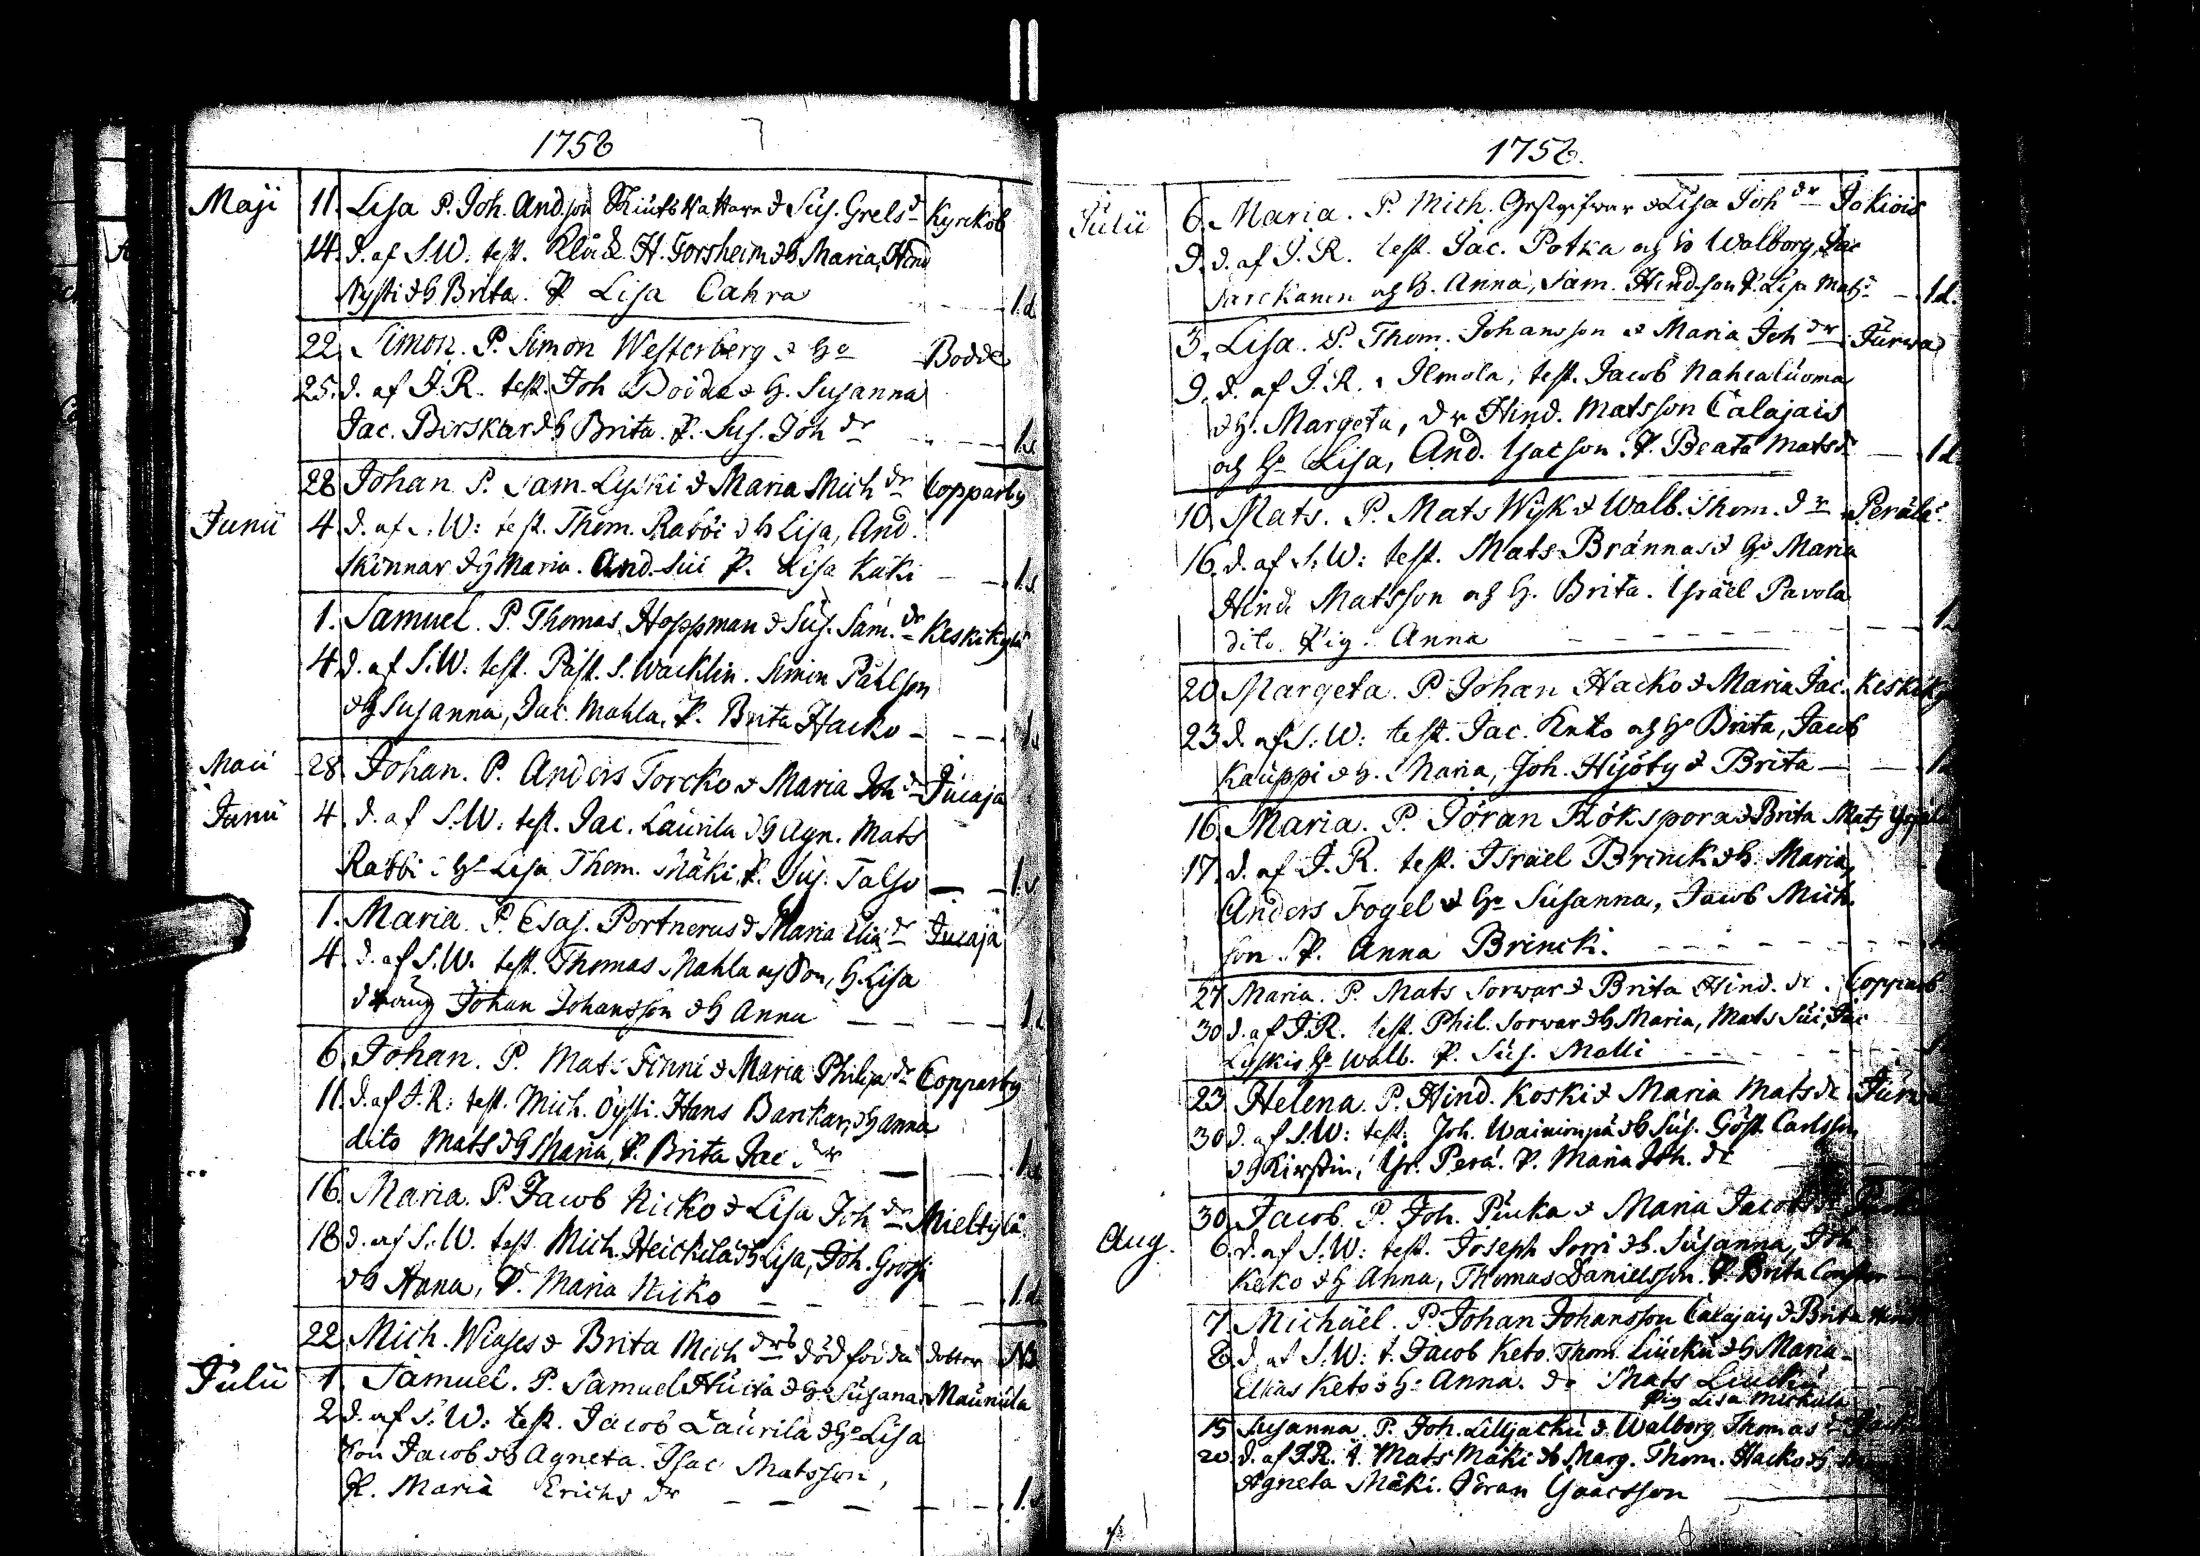 1758
Maji 11. Lisa P. Joh. Andsson & Sus. Grelsd Kyrckob
14. d. af S.W. test. H. Forsheim & H Maria, Hind
Nysti & H Brita. P. Lisa Cahra 1.d.
22. Simon. P. Simon Westerberg & Ho Bodde
25. d. af J.R. test. Joh Boide & H. Susanna
Jac. Birskar & H Brita. P. Sus. Joh dr 1.
28 Johan P. Sam. Lyski & Maria Mich dr Copparby
Junii 4. d. af S.W: test. Thom. Rabbi & H Lisa, And.
Skinnar & H Maria. And. Sui P. Lisa Kuki 1.s
1. Samuel. P. Thomas Hoppman & Sus. Sam. dr Keskikylä
4 d. af S.W. test. Past. S. Wacklin. Simon Påhlson
& H Susanna, Jac. Mahla, P. Brita Hacko 1.
Maii 28. Johan. P. Anders Torcko & Maria Joh dr Jucaja
Junii 4. d. af S.W. test. Jac. Laurila & H Agn. Mats
Rabbi & Ho Lisa Thom. Mäki, P. Sus. Talso 1.s
1. Maria. P. Esas. Portnerus & Maria Elia dr Jucaja
4. d. af S.W. test. Thomas Mahla och Son, H. Lisa
dräng Johan Johansson & H Anna 1.
6. Johan. P. Mats Finni & Maria Philips dr Copparby
11. d. af J.R: test. Mich. Öysti. Hans Barckar, & H Anna
dito Mats & H Maria, P. Brita Jac. dr 1.
16. Maria. P. Jacob Nicko & Lisa Joh dr Mieltylä
18 d. af S.W. test. Mich. Heickilä & H Lisa, Joh. Grossi
& H Anna, P. Maria Nicko 1.d.
22. Mich. & Brita Mich drs död födda dotter NB
Julii 1. Samuel. P. Samuel & Ho Susana Maunula
2 d. af S.W. test. Jacob Laurila & Ho Lisa
Son Jacob & H Agneta. Isac Matsson,
P. Maria Erichs dr 1.
1758.
Julii 6. Maria. P. Mich. Gestgifwar & Lisa Joh dr Jokiois
9. d. af J.R. test. Jac. Potka och Ho Walborg, Jac
Sarckanen och H. Anna, Sam. Hindsson P. Lisa Mats 1d.
3. Lisa. P. Thom. Johansson & Maria Joh dr Jurwa
9. d. af J.R. i Ilmola, test. Jacob Nahcaluoma
& H. Margeta, dr Hind. Matsson Calajais
och Ho Lisa, And. Isacson. P. Beata Matsd 1d.
10. Mats. P. Mats Wijk & Walb. Thom. dr Perälä
16. d. af S.W: test. Mats Brännas & Ho Maria
Hind Matsson och H. Brita. Israel Pavola
dito. Pig. Anna 1
20. Margeta. P. Johan Hacko & Maria Jac. Keskiky
23 d. af S.W: test. Jac. Knto och Ho Brita, Jacob
Kauppi & H. Maria, Joh. Hijöby & Brita 1
16. Maria. P. Jöran Rökspora & Brita Mats
17. d. af J.R. test. Israel Brinck & H. Maria,
Anders Fogel & Ho Susanna, Jacob Mich.
son. P. Anna Brinck.
27 Maria. P. Mats Sorwar & Brita Hind. dr. Copparb
30 d. af J.R. test. Phil. Sorwar & H Maria, Mats Sui, Jac
Lyskis Ho Walb. P. Sus. Malli
23 Helena. P. Hind. Koski & Maria Mats dr Jurwa
30 d. af S.W: test. Joh. Wainionpä & H Sus. Göst. Carlsson
& H Kirstin, Isr. Perä. P. Maria Joh. dr
30. Jacob. P. Joh. Piuka & Maria Jacobs
Aug. 6. d. af S.W: test. Joseph Sorri & H. Susanna, Joh
Keko & H Anna, Thomas Danielsson. P. Brita
7. Michäel. P. Johan Johansson Calajais & Brita
8. d. af S.W: t. Jacob Keto. Thom. Liucku & H Maria
Elias Keto & Ho Anna. dr Mats Liucku
Pig Lisa Mickula
15 Susanna. P. Joh. Liljackù & Walborg Thomas
20 d. af J.R. t. Mats Mäki & H Marg. Thom. Hacko & H
Agneta Mäki. Jöran Isacsson